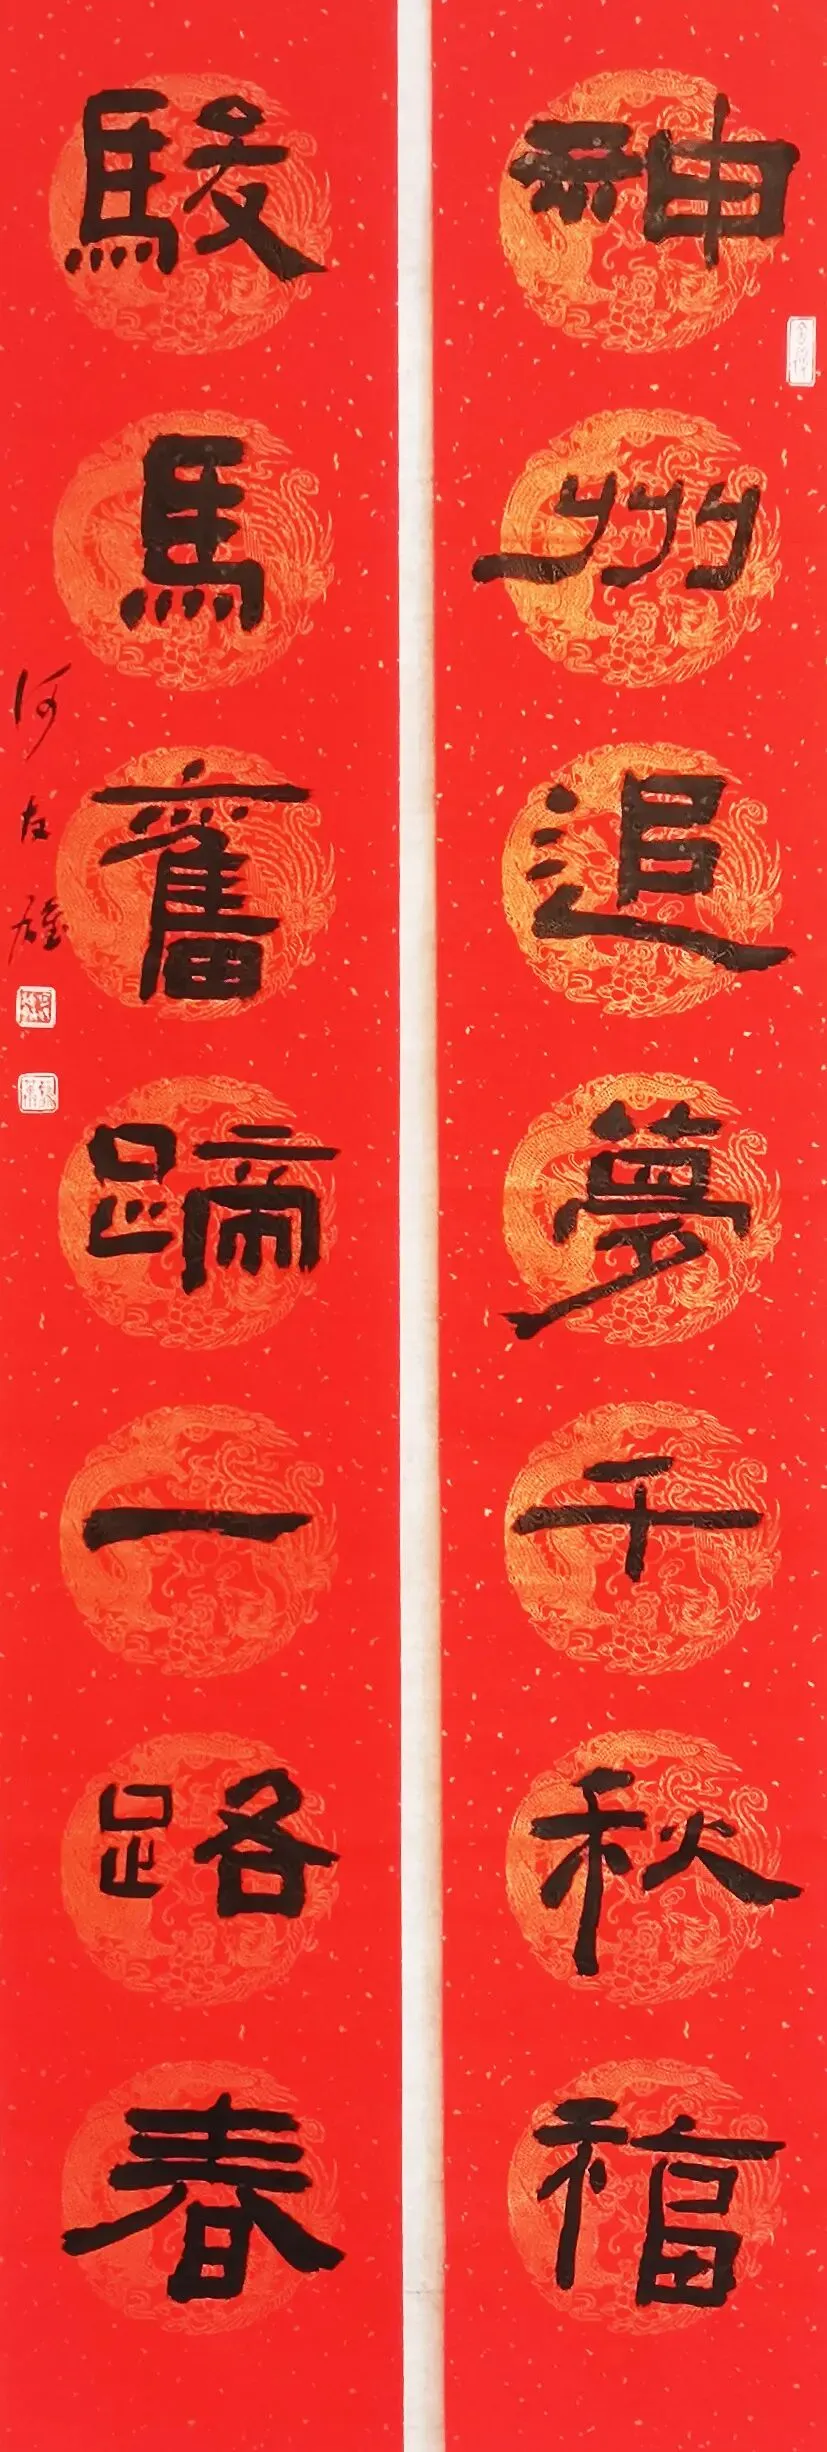 神州追夢千秋福
駿馬奮蹄一路春
何友雄